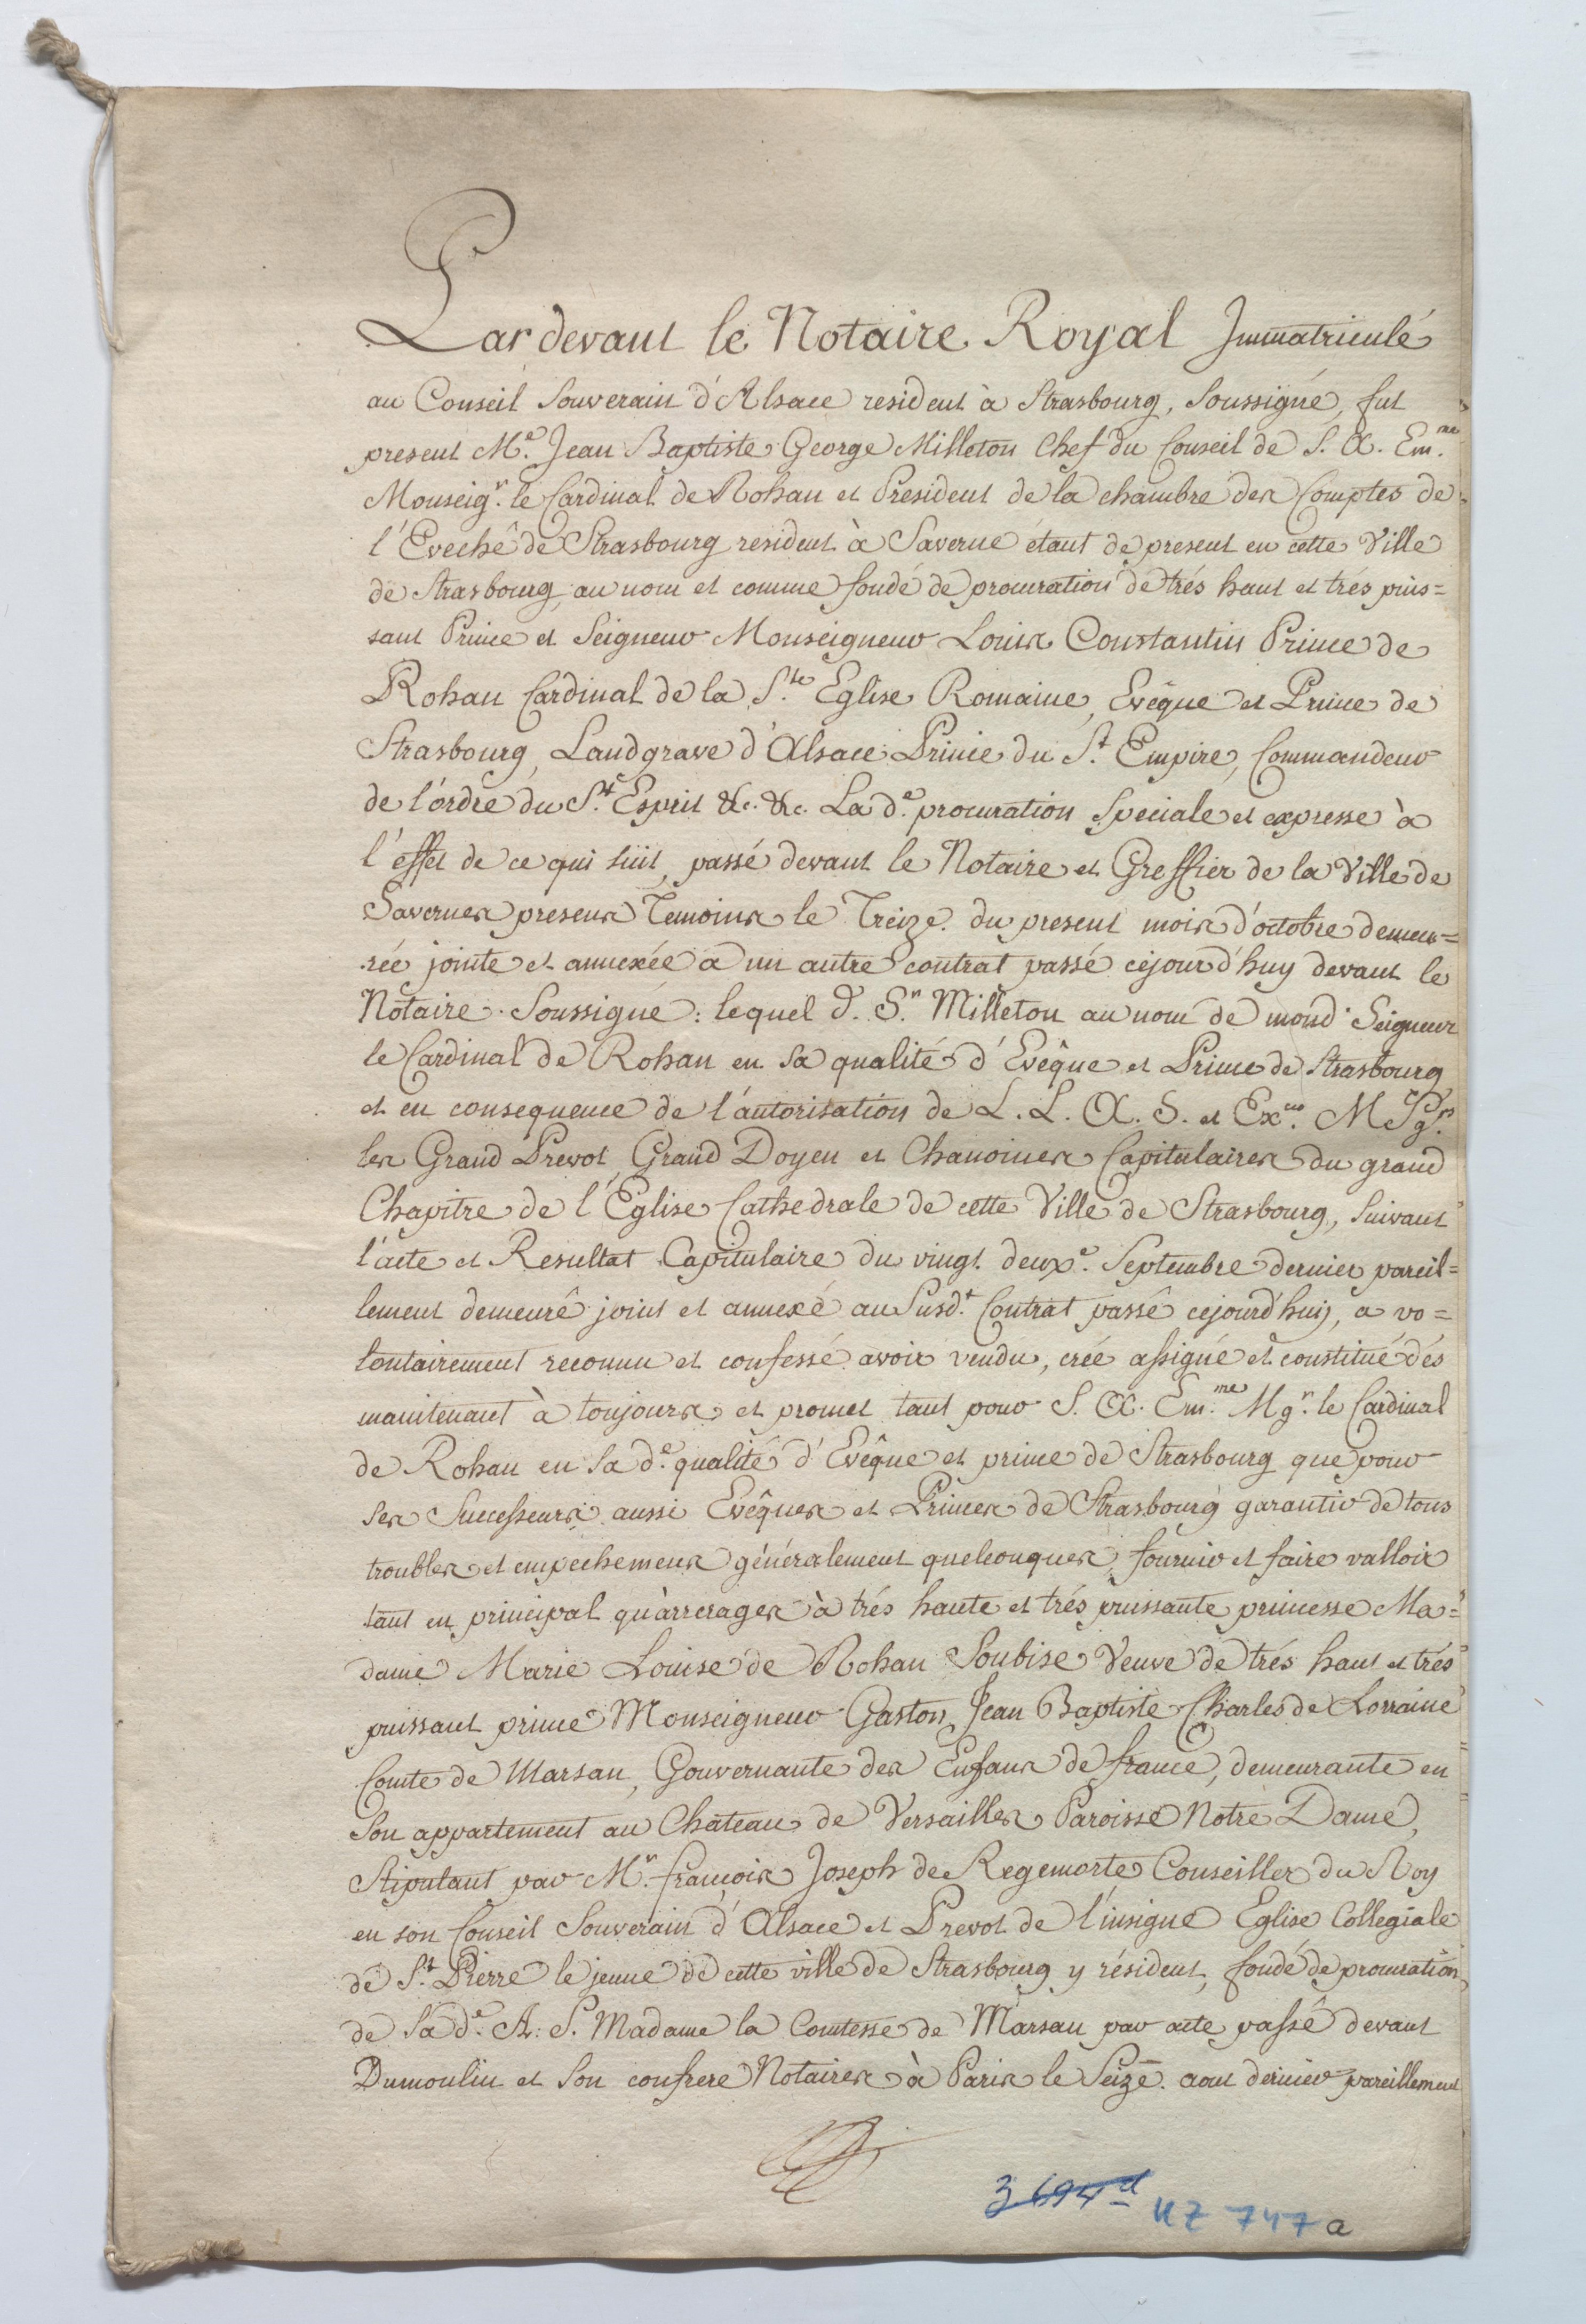 Par devant le Notaire Royal Immatriculé
au Conseil Souverain d'Alsace resident à Strasbourg, Soussigné, fut
present M.e Jean Baptiste George Milleton Chef du Conseil de S. A. Em.me
Monseig.r le Cardinal de Rohan et President de la chambre des Comptes de
l'Evechê de Strasbourg resident à Saverne étant de present en cette Ville
de Strasbourg, au nom et comme fondé de procuration de trés haut et trés puis=
sant Prince et Seigneur Monseigneur Louis Constantin Prince de
Rohan Cardinal de la S.te Eglise Romaine, Evêque et Prince de
Strasbourg, Landgrave d'Alsace Prince du S.t Empire, Commandeur
de l'ordre du S.t Esprit &c. &c. La d.e procuration Speciale et expresse à
l'effet de ce qui suit, passé devant le Notaire et Greffier de la Ville de
Savernes presens Temoins le Treize du present mois d'octobre demeu=
rée jointe et annexée a un autre contrat passé cejourd'huy devant le
Notaire Soussigné: lequel d. S.r Milleton au nom de mond. Seigneur
le Cardinal de Rohan en Sa qualité d'Evêque et Prince de Strasbourg
et en consequence de l'autorisation de L. L. A. S. et Ex.ces M Sg.rs
les Grand Prevot, Grand Doyen et Chanoines Capitulaires du grand
Chapitre de l'Eglise Cathedrale de cette Ville de Strasbourg, suivant
l'acte et Resultat Capitulaire du vingt deux.e Septembre dernier pareil=
lement demeurê joint et annexé au Susd.t Contrat passê cejourd'huy, a vo=
lontairement reconnu et confessé avoir vendu, creé assigné et constitué dés
maintenant à toujours et promet tant pour S. A. Em.me Mg.r le Cardinal
de Rohan en Sa d.e qualité d'Evêque et prince de Strasbourg que pour
ses Successeurs aussi Evêques et Princes de Strasbourg garantir de tous
troubles et empechemens généralement quelconques, fournir et faire valloir
tant en principal qu'arrerages à trés haute et trés puissante princesse Ma=
dame Marie Louise de Rohan Soubise Veuve de trés haut et trés
puissant prince Monseigneur Gaston Jean Baptiste Charles de Lorraine
Comte de Marsan, Gouvernante des Enfans de france, demeurante en
Son appartement au Chateau de Versailles Paroisse Notre Dame,
Stipulant par M.r françois Joseph de Regemorte Conseiller du Roy
en son Conseil Souverain d'Alsace et Prevot de l'insigne Eglise Collegiale
de S.t Pierre le jeune de cette ville de Strasbourg y résident, fondé de procuration
de Sa d.e A. S. Madame la Comtesse de Marsan par acte passé devant
Dumoulin et Son confrere Notaires à Paris le Seize aout dernier pareillement
3 694 d
UZ 747 a